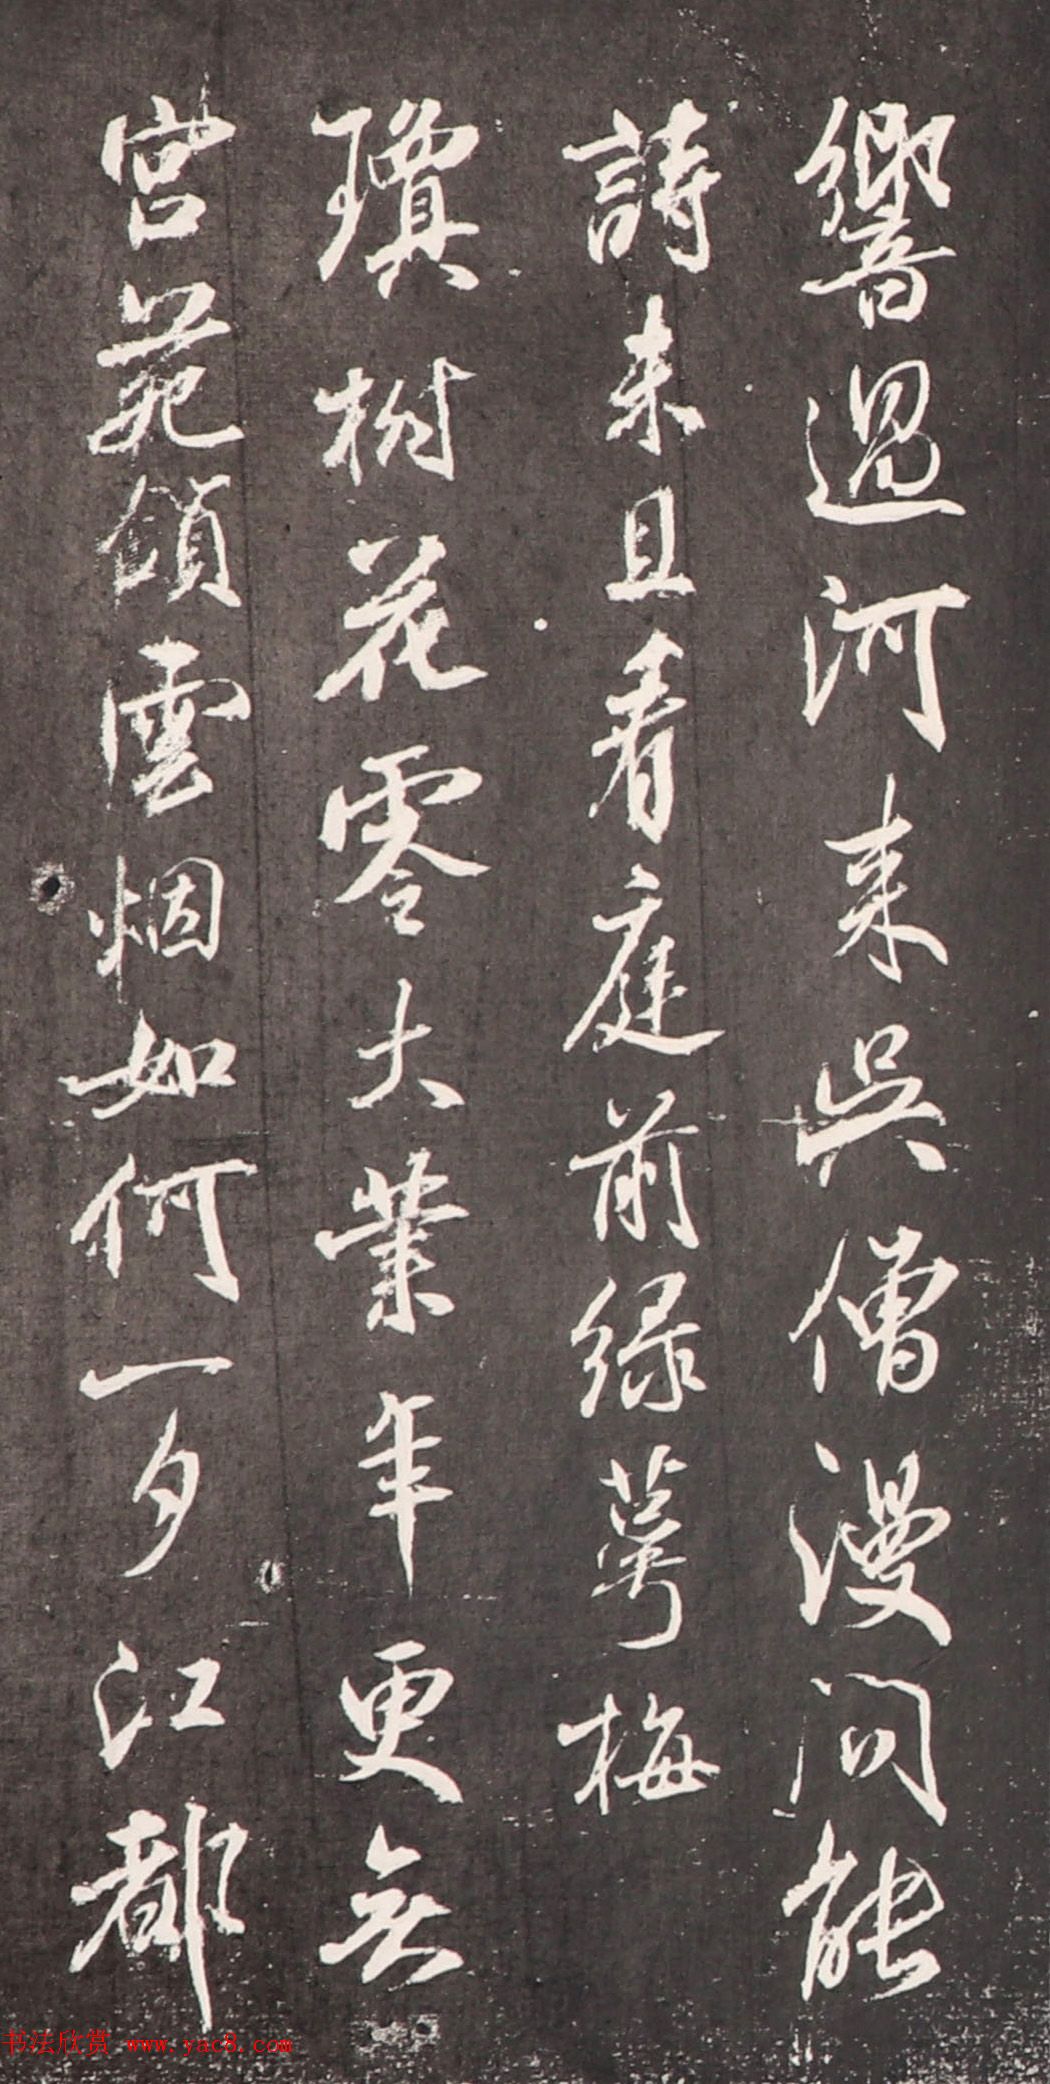 響過河来吳僧漫問能
詩未且看庭前緑萼梅
瓊樹花零大業年更無
宮苑鎖雲烟如何一夕江都
书法欣赏 www.yac8.com